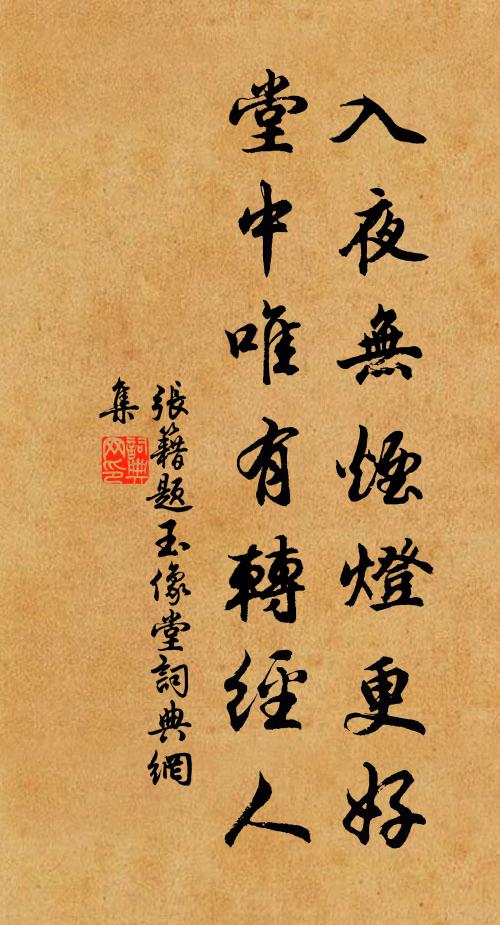 入夜無煙燈更好
堂中唯有轉經人
張籍題玉像堂詞典網
集
詞典網印